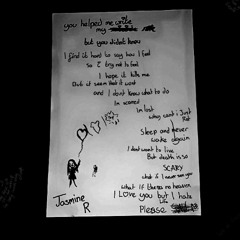 you helped me write
my
but you didn't know
I find it hard to say how I feel
So I try not to feel
I hope it kills me
But it seems that it wont
and I dont know what to do
Im scared
Im lost
why cant I Just
Rot
Sleep and never
wake again
I dont want to live
But death is so
SCARY
what if I never see you
What if theres no heaven
I Love you but I hate
Life
Please
Jasmine
R